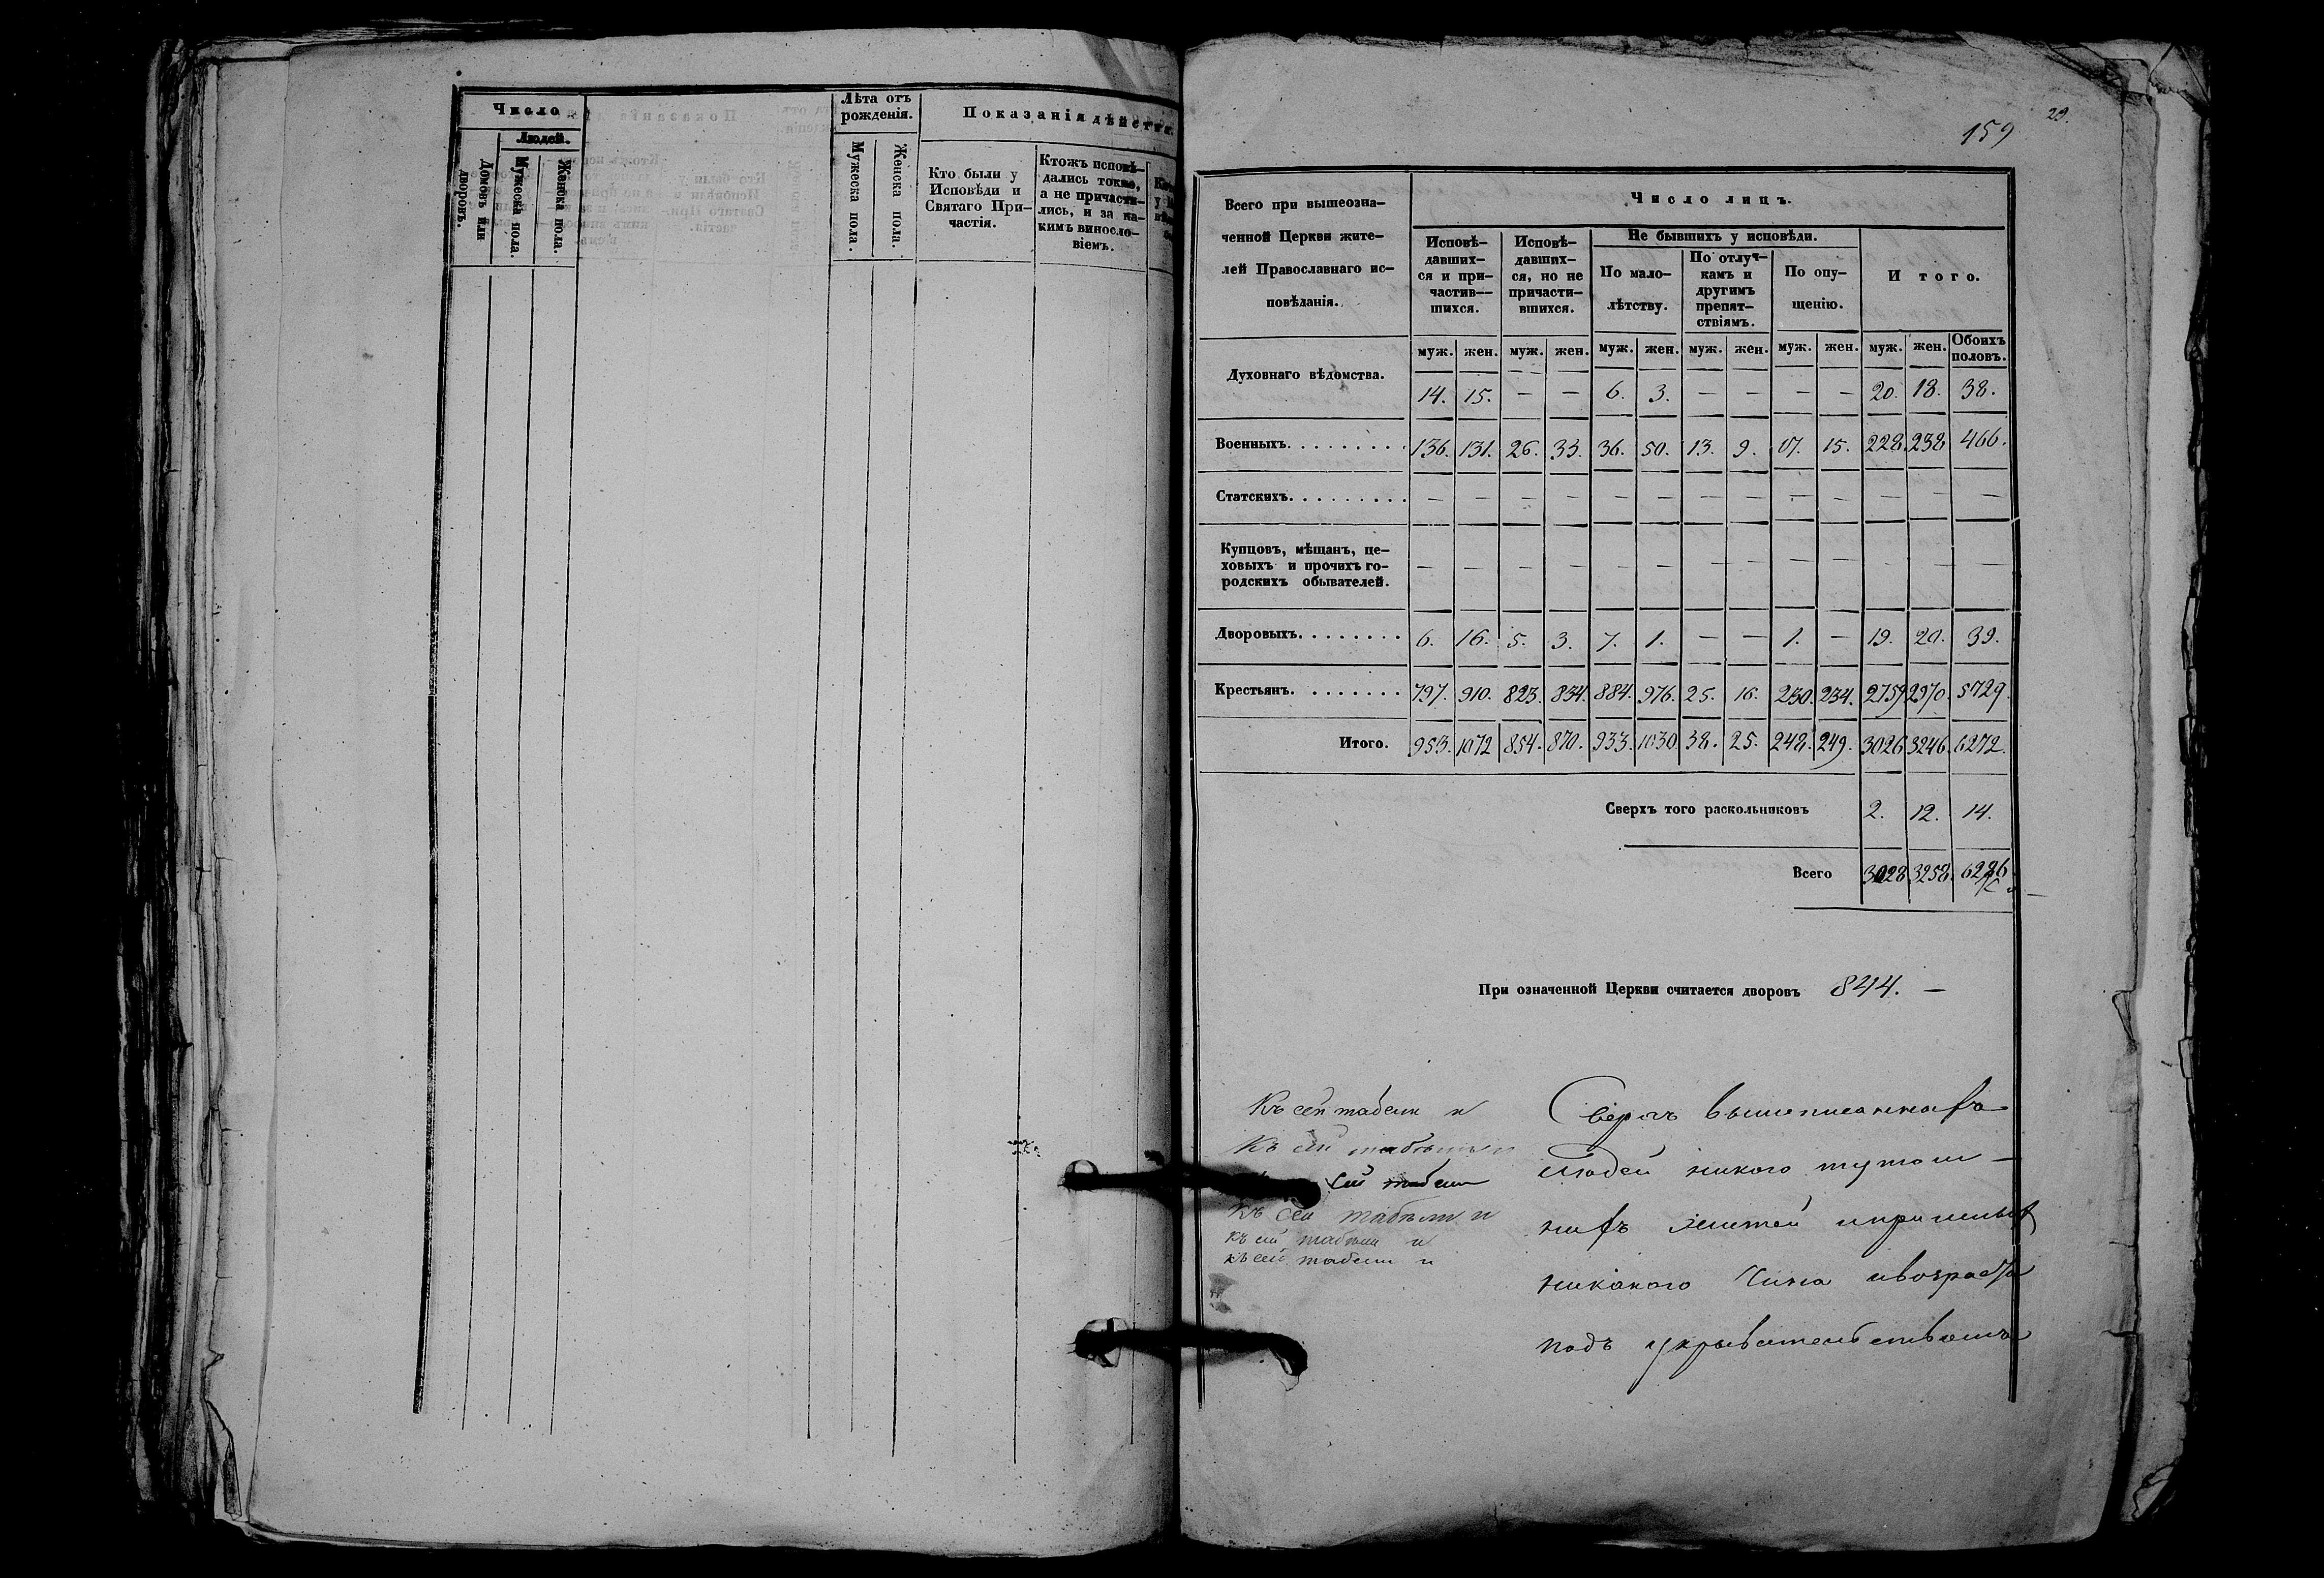 Число
Людей.
Домовъ или дворовъ.
Мужеска пола.
Женска пола.
Лѣта отъ рожденія.
Мужеска пола.
Женска пола.
Показанія дѣйства
Кто были у
Исповѣди и
Святаго При-
частія.
Ктожъ исповѣ-
дались токмо,
а не причасти-
лись, и за ка-
кимъ винослo-
віемъ.
159
29.
Всего при вышеозна-
ченной Церкви жите-
лей Православнаго ис-
повѣданія.
Число лицъ.
Исповѣ-
давших-
ся и при-
частив-
шихся.
Исповѣ-
давших-
ся, но не
причасти-
вшихся.
Не бывшихъ у исповѣди.
По мало-
лѣтству.
По отлуч-
камъ и
другимъ
препят-
ствіямъ.
По опу-
щенію.
Итого.
муж. жен. муж. жен. муж. жен. муж. жен. муж. жен. муж. жен. Обоихъ половъ.
Духовнаго вѣдомства. 14. 15. — — 6. 3. — — — — 20. 18. 38.
Военныхъ. 136. 131. 26. 33. 36. 50. 13. 9. 17. 15. 228. 238. 466.
Статскихъ. — — — — — — — — — — — — —
Купцовъ, мѣщанъ, це-
ховыхъ и прочихъ го-
родскихъ обывателей. — — — — — — — — — — — — —
Дворовыхъ. 6. 16. 5. 3. 7. 1. — — 1. — 19. 20. 39.
Крестьянъ. 797. 910. 823. 834. 884. 976. 25. 16. 230. 234. 2759. 2970. 5729.
Итого. 953. 1072 854. 870. 933. 1030. 38. 25. 248. 249. 3026. 3246. 6272.
Сверхъ того раскольниковъ 2. 12. 14.
Всего 3028 3258. 6286
При означенной Церкви считается дворовъ 844. —
Къ сей табели и
Къ сей табели и
сей табели
Къ сей табели и
къ сей табели и
къ сей табели и
Сверхъ вышеписанныхъ
людей никого тутош-
нихъ жителей и пришлыхъ
никакого чина и возраста
подъ укрывательствомъ